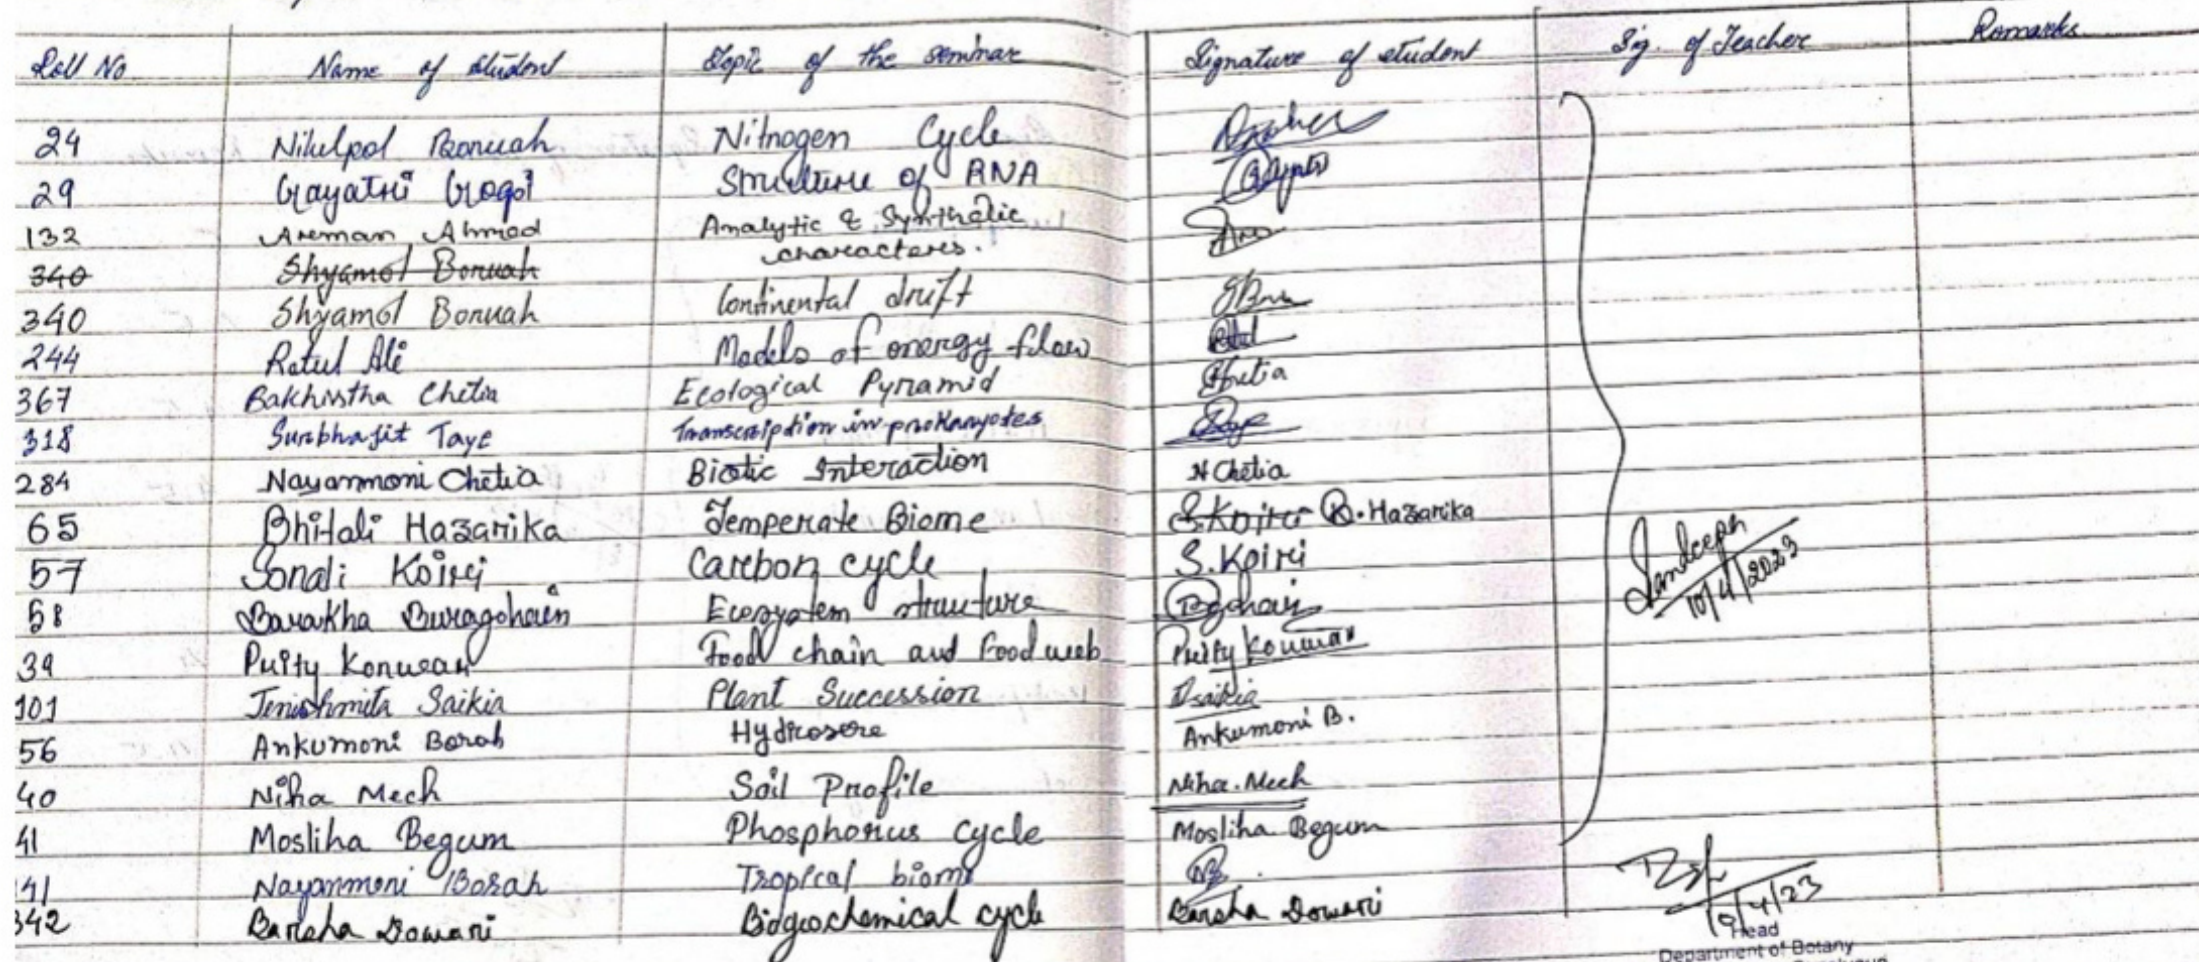 Roll No Name of student Topic of the seminar Signature of student Sig. of Teacher Remarks
24 Nilulpol Boruah Nitrogen Cycle
29 Gayatri Gogoi Structure of RNA
132 Areman Ahmed Analytic & Synthetic
characteres.
340 Shyamol Boruah
340 Shyamol Boruah Continental drift
244 Ratul Ali Models of energy flow
367 Bakhistha Chetia Ecological Pyramid Chetia
318 Surbhajit Taye Transcription in prokaryotes
284 Nayanmoni Chetia Biotic Interaction N Chetia
65 Bhitali Hazarika Temperate Biome S. Koiri B. Hazarika
57 Sonali Koiri Carbon cycle S. Koiri
58 Barakha Buragohain Ecosystem structure
39 Purity Konwar Food chain and Food web Purity Konwar
101 Jenishmita Saikia Plant Succession Saikia
56 Ankumoni Borah Hydrosere Ankumoni B.
40 Niha Mech Soil Profile Niha. Mech
41 Mosliha Begum Phosphorus cycle Mosliha Begum
141 Nayanmoni Borah Tropical biome NB
342 Barsha Dowari Biogeochemical cycle Barsha Dowari
10/4/2023
10/4/23
Head
Department of Botany